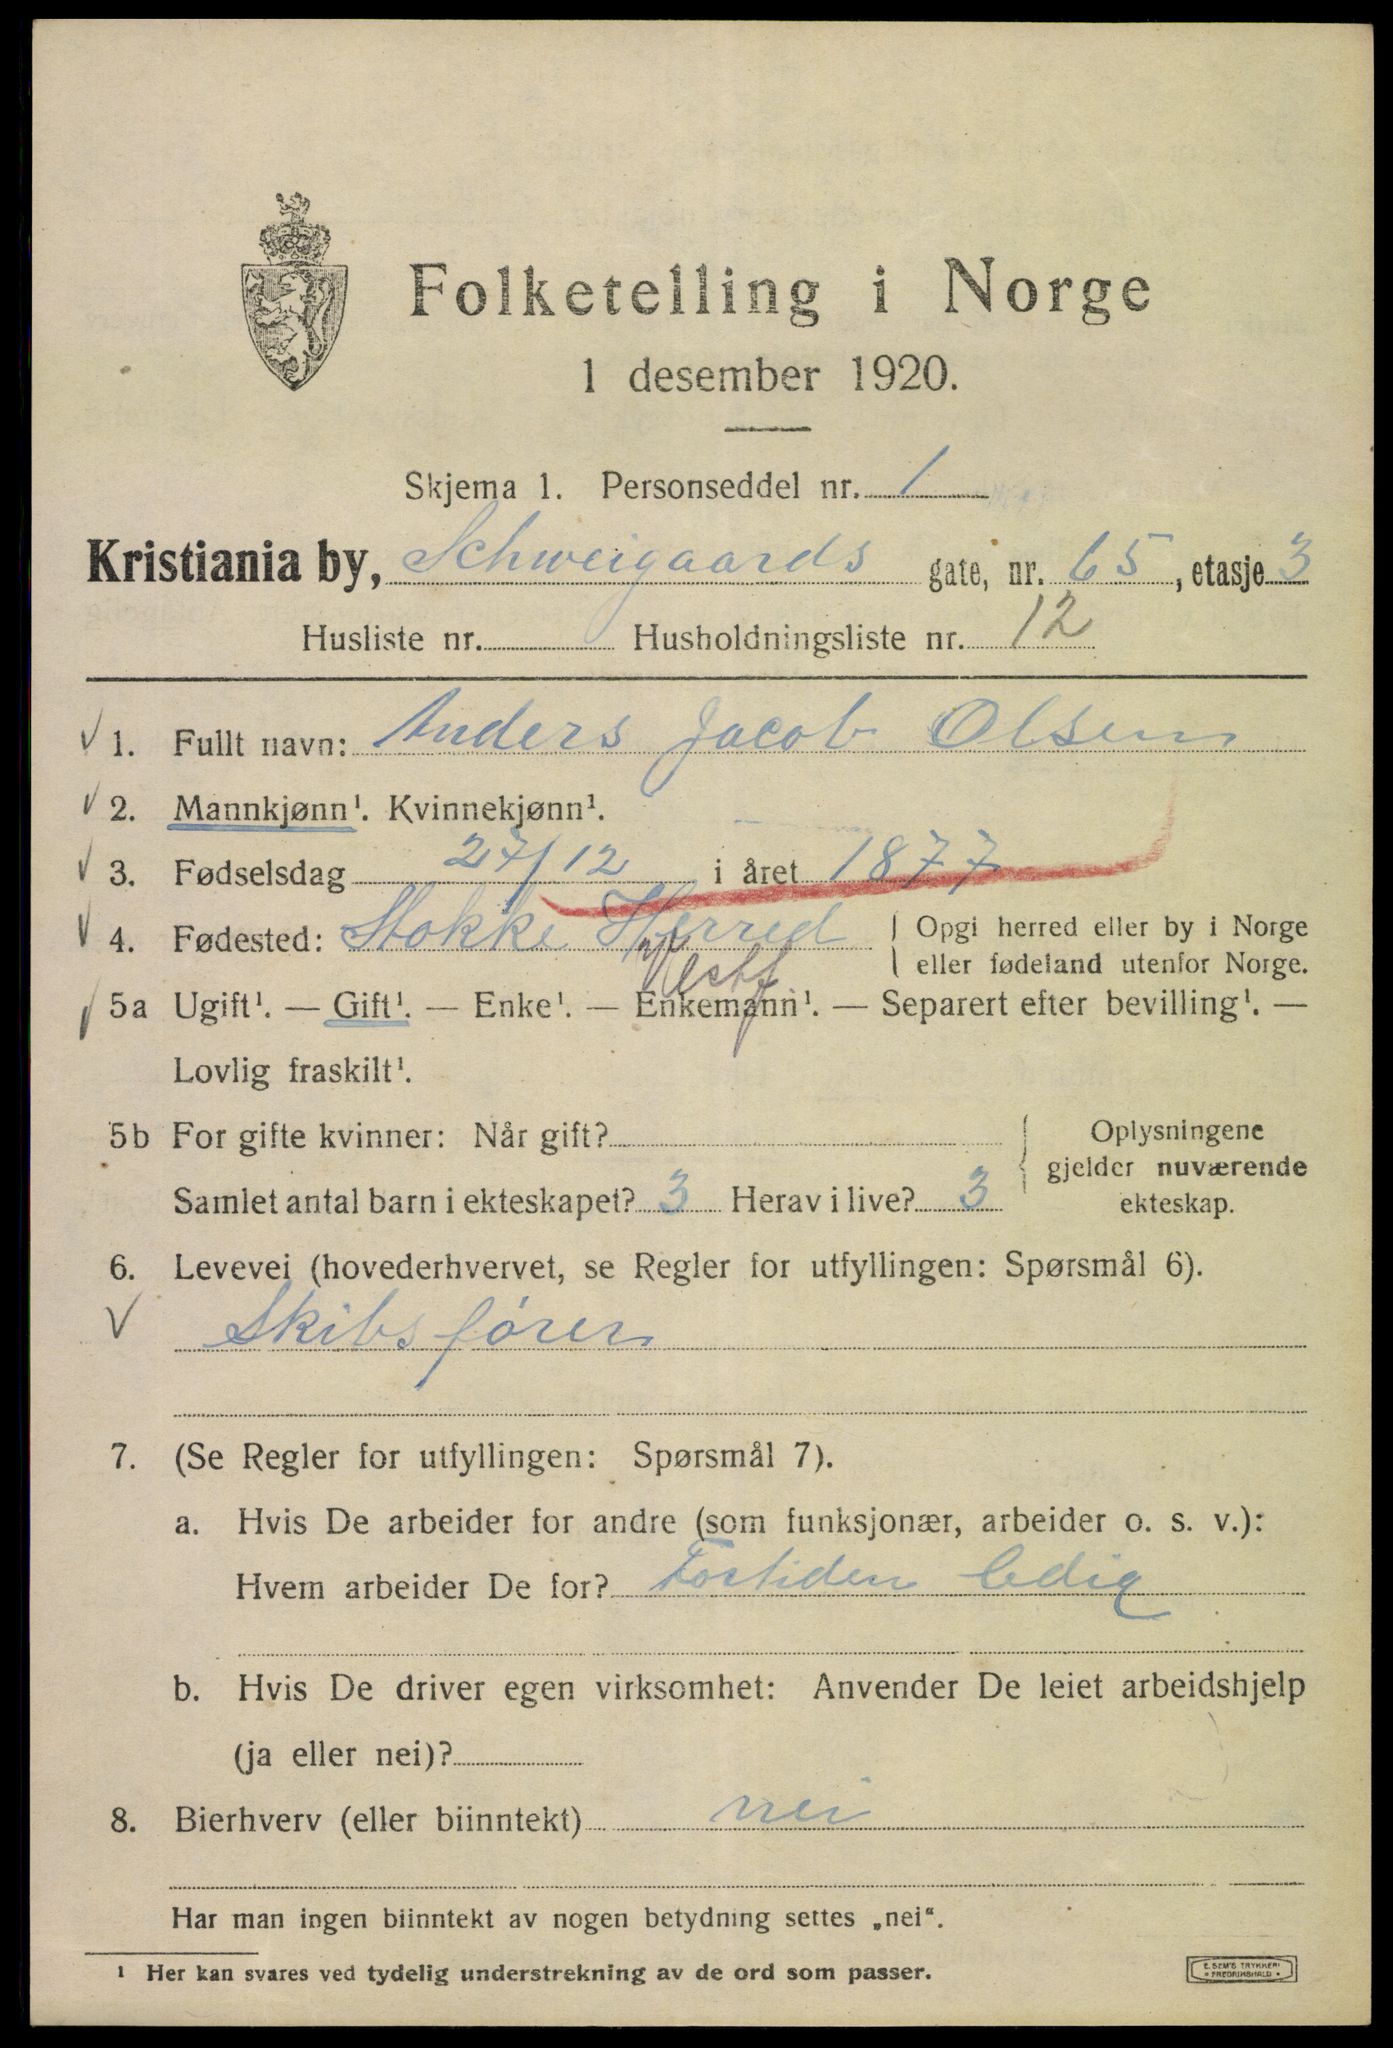 Folketelling i Norge
1 desember 1920.
Skjema 1. Personseddel nr. 1
Kristiania by, Schweigaards gate, nr. 65, etasje 3
Husliste nr. Husholdningsliste nr. 12
√ 1. Fullt navn: Anders Jacob Olsen
√ 2. Mannkjønn¹. Kvinnekjønn¹.
√ 3. Fødselsdag 27/12 i året 1877
√ 4. Fødested: Stokke Herred { Opgi herred eller by i Norge
eller fødeland utenfor Norge.
Vestf
√ 5a Ugift¹. — Gift¹. — Enke¹. — Enkemann¹. — Separert efter bevilling¹. —
Lovlig fraskilt¹.
5b For gifte kvinner: Når gift?
Samlet antal barn i ekteskapet? 3 Herav i live? 3
Oplysningene
gjelder nuværende
ekteskap.
6. Levevei (hovederhvervet, se Regler for utfyllingen: Spørsmål 6).
√ Skibsfører
7. (Se Regler for utfyllingen: Spørsmål 7).
a. Hvis De arbeider for andre (som funksjonær, arbeider o. s. v.):
Hvem arbeider De for? Fortiden ledig
b. Hvis De driver egen virksomhet: Anvender De leiet arbeidshjelp
(ja eller nei)?
8. Bierhverv (eller biinntekt) nei
Har man ingen biinntekt av nogen betydning settes „nei“.
¹ Her kan svares ved tydelig understrekning av de ord som passer.
E. SEM'S TRYKKERI
• FREDRIKSHALD •